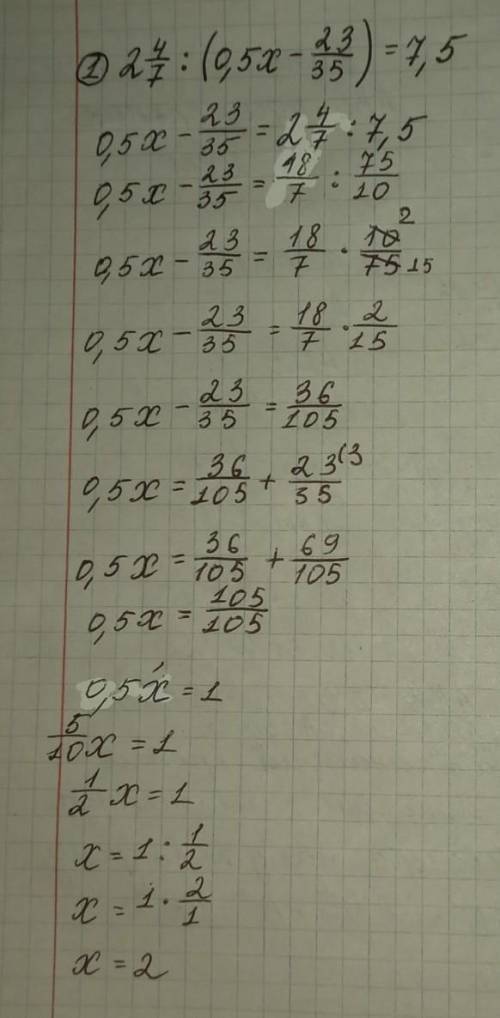 ① 2 4/7 : (0,5x - 23/35) = 7,5
0,5x - 23/35 = 2 4/7 : 7,5
0,5x - 23/35 = 18/7 : 75/10
0,5x - 23/35 = 18/7 · 10 2/75 15
0,5x - 23/35 = 18/7 · 2/15
0,5x - 23/35 = 36/105
0,5x = 36/105 + 23(3/35
0,5x = 36/105 + 69/105
0,5x = 105/105
0,5x = 1
5/10x = 1
1/2 x = 1
x = 1 : 1/2
x = 1 · 2/1
x = 2